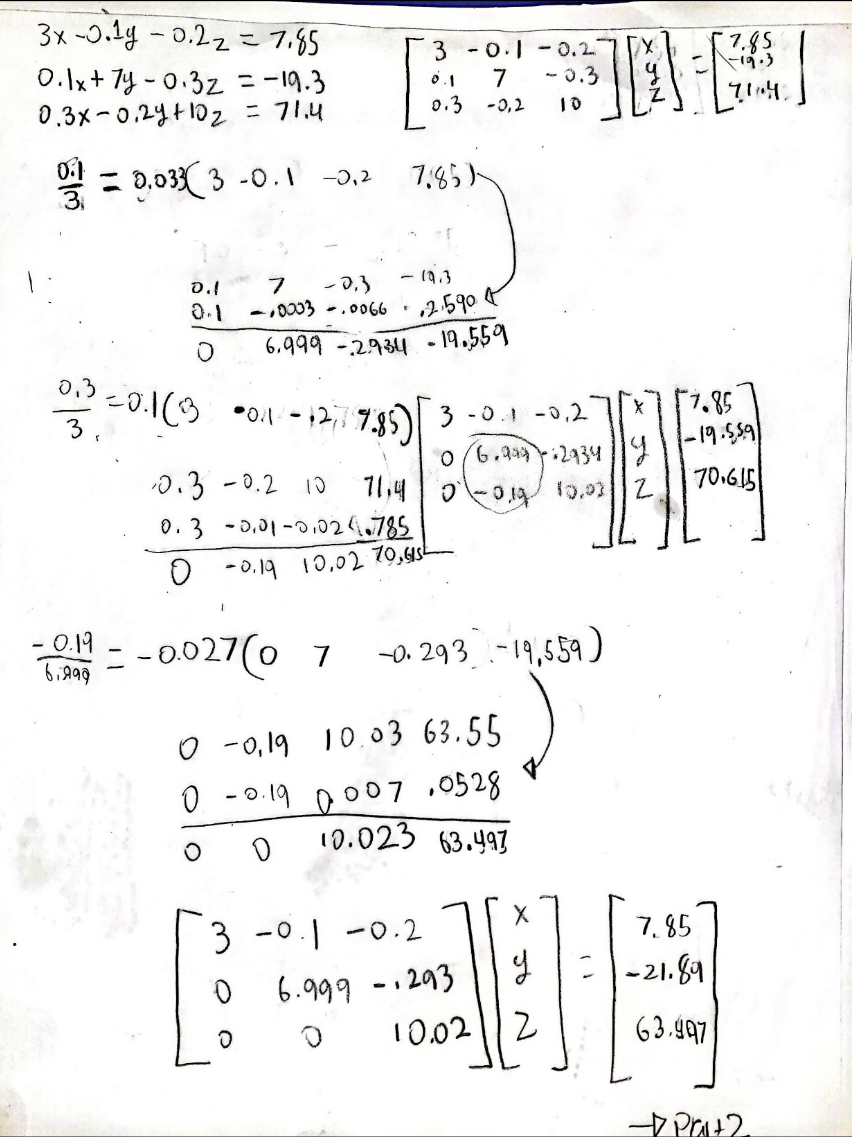 3x - 0.1y - 0.2z = 7.85
0.1x + 7y - 0.3z = -19.3
0.3x - 0.2y + 10z = 71.4
[3 -0.1 -0.2] [x] = [7.85]
[0.1 7 -0.3] [y] [-19.3]
[0.3 -0.2 10] [z] [71.4]
0.1/3 = 0.033(3 -0.1 -0.2 7.85)
0.1 7 -0.3 -19.3
0.1 -.0033 -.0066 .2590
0 6.999 -.2934 -19.559
0.3/3 = 0.1(3 -0.1 -.2, 7.85)
0.3 -0.2 10 71.4
0.3 -0.01 -0.02 .785
0 -0.19 10.02 70.615
[3 -0.1 -0.2] [x] [7.85]
[0 6.999 -.2934] [y] [-19.559]
[0 -0.19 10.02] [z] [70.615]
-0.19/6.999 = -0.027(0 7 -0.293 -19.559)
0 -0.19 10.03 63.55
0 -0.19 0.007 .0528
0 0 10.023 63.497
[3 -0.1 -0.2] [x] = [7.85]
[0 6.999 -.293] [y] [-21.89]
[0 0 10.02] [z] [63.497]
→ Part 2